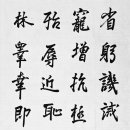 省躬譏誡
寵增抗極
殆辱近耻
林皋幸即